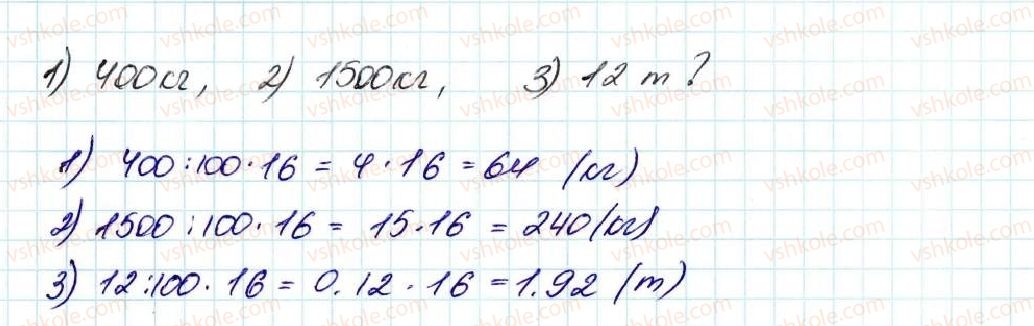 1) 400кг, 2) 1500кг, 3) 12 т?
1) 400:100·16 = 4·16 = 64 (кг)
2) 1500:100·16 = 15·16 = 240(кг)
3) 12:100·16 = 0.12·16 = 1.92 (т)